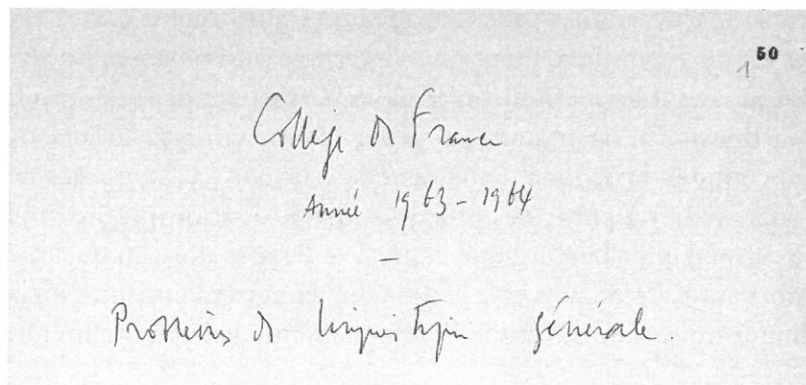 1 50
Collège de France
Année 1963-1964
—
Problèmes de linguistique générale.